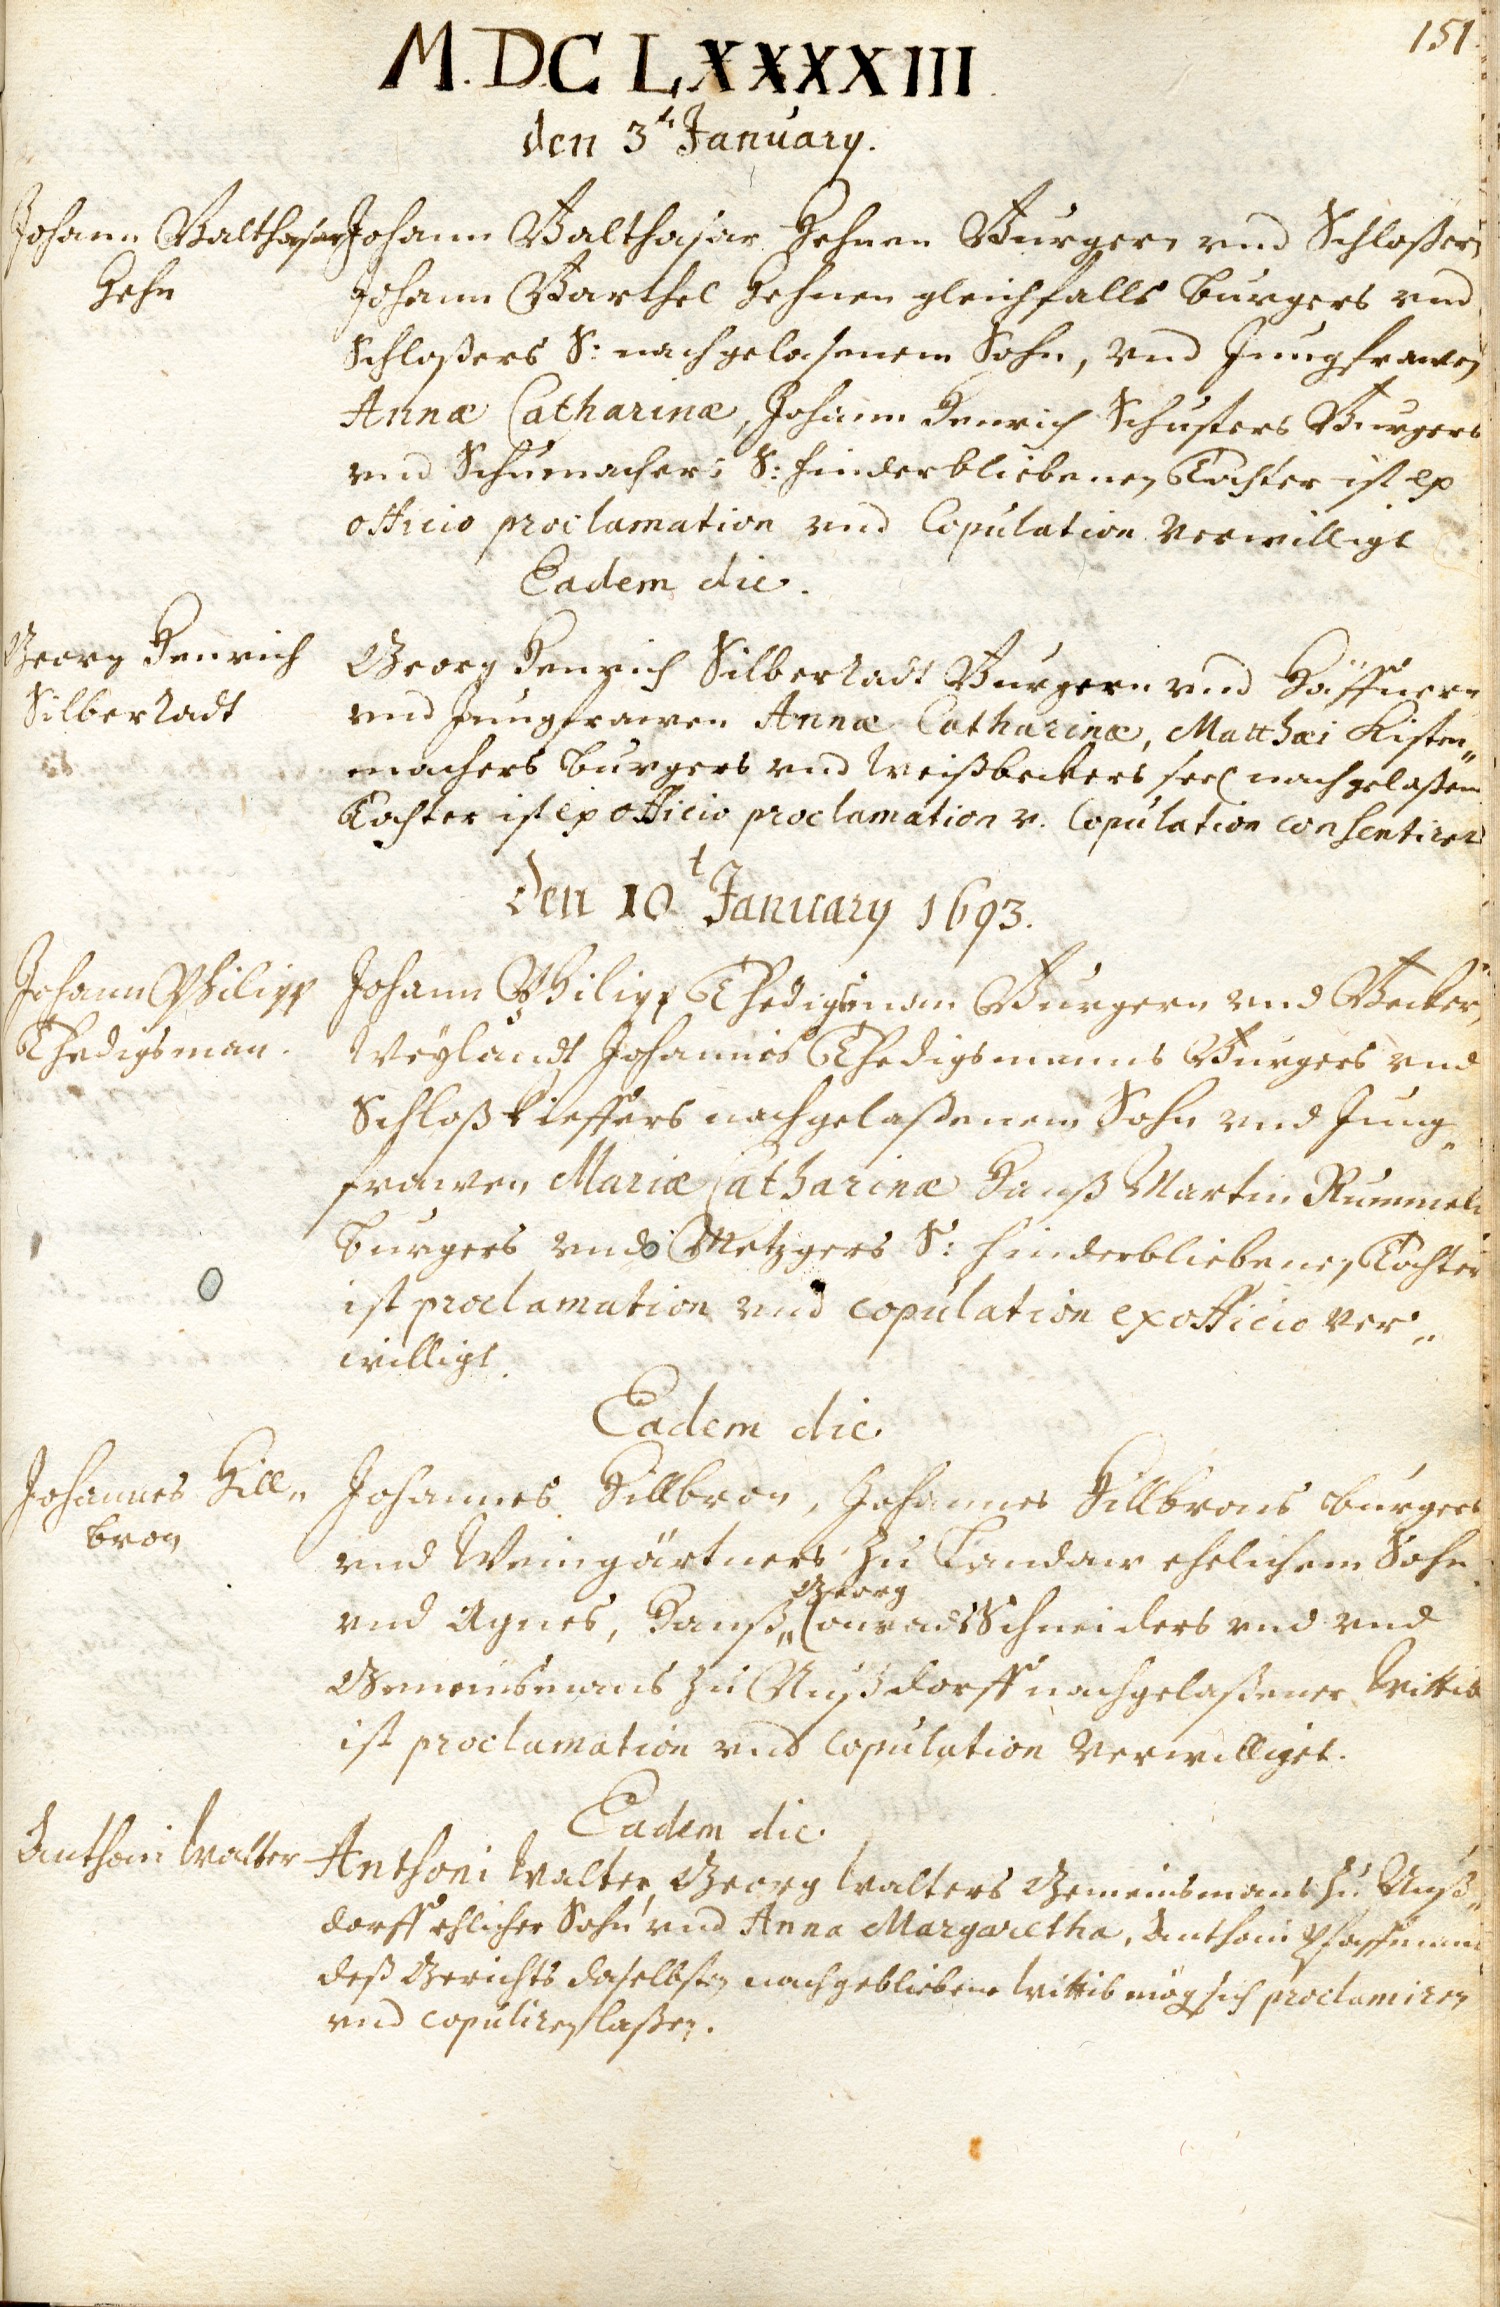 151.
M.DC LXXXXIII.
den 3t January.
Johann Balthasar
Hehn
Johann Balthasar Hehnen Burgern vnd Schloßern,
Johann Barthel Hehnen gleichfalls burgers vnd
Schloßers S: nachgelasenem Sohn, vnd Jungfrawen
Annæ Catharinæ, Johann Henrich Schusters Burgers
vnd Schumachers S: hinderbliebenen Tochter ist ex
officio proclamation vnd Copulation verwilligt
Eadem die.
Georg Henrich
Silberradt
Georg Henrich Silberradt Burgern vnd Häffnern
vnd Jungfrawen Annæ Catharinæ, Matthæi Kisten„
machers burgers vnd Weißbeckers seel nachgelaßene
Tochter ist ex officio proclamation v. Copulation consentiret
den 10t January 1693.
Johann Philipp
Thedigsman.
Johann Philipp Thedigsman Burgern vnd Becker,
Weÿlandt Johannes Thedigsmanns Burgers vnd
Schloß kieffers nachgelaßenem Sohn vnd Jung„
frawen Mariæ Catharinæ Hanß Martin Rummels
burgers vnd Metzgers S: hinderbliebenen Tochter
ist proclamation vnd copulation ex officio ver„
willigt.
Eadem die.
Johannes Hill„
bron
Johannes Hillbron, Johannes Hillbrons burgers
vnd Weingärtners zu Landaw ehelichem Sohn
vnd Agnes, Hanß„ Georg Conrads Schneiders vnd vnd
Gemeinsmans zu Nußdorff nachgelaßener Wittib
ist proclamation vnd copulation verwilliget.
Eadem die.
Anthoni Walter
Anthoni Walter, Georg Walters Gemeinsmans zu Nuß„
dorff ehlicher Sohn vnd Anna Margaretha, Anthoni Pfaffmans
deß Gerichts daselbsten nachgebliebene Wittib mög sich proclamiren
vnd copuliren laßen.